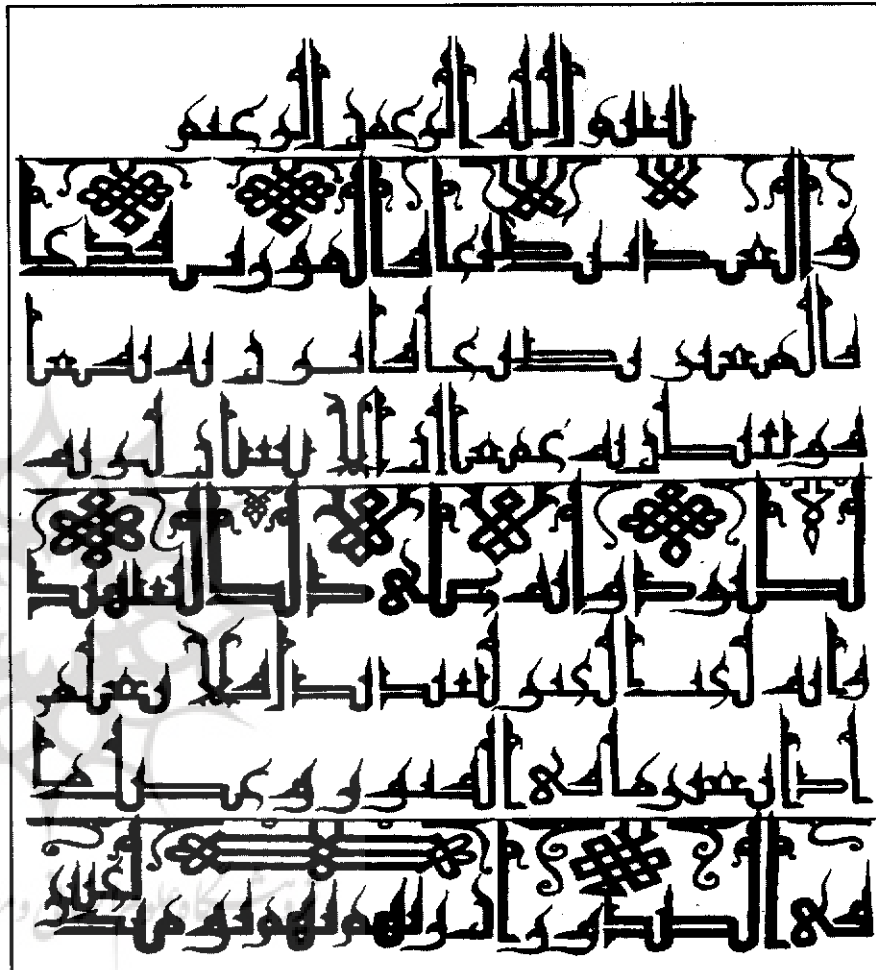 بسم الله الرحمن الرحيم
والعديت ضبحا فالموريت قدحا
فالمغيرت صبحا فاثرن به نقعا
فوسطن به جمعا ان الانسن لربه
لكنود وانه على ذلك لشهيد
وانه لحب الخير لشديد افلا يعلم
اذا بعثر ما في القبور وحصل ما
في الصدور ان ربهم بهم يومئذ لخبير